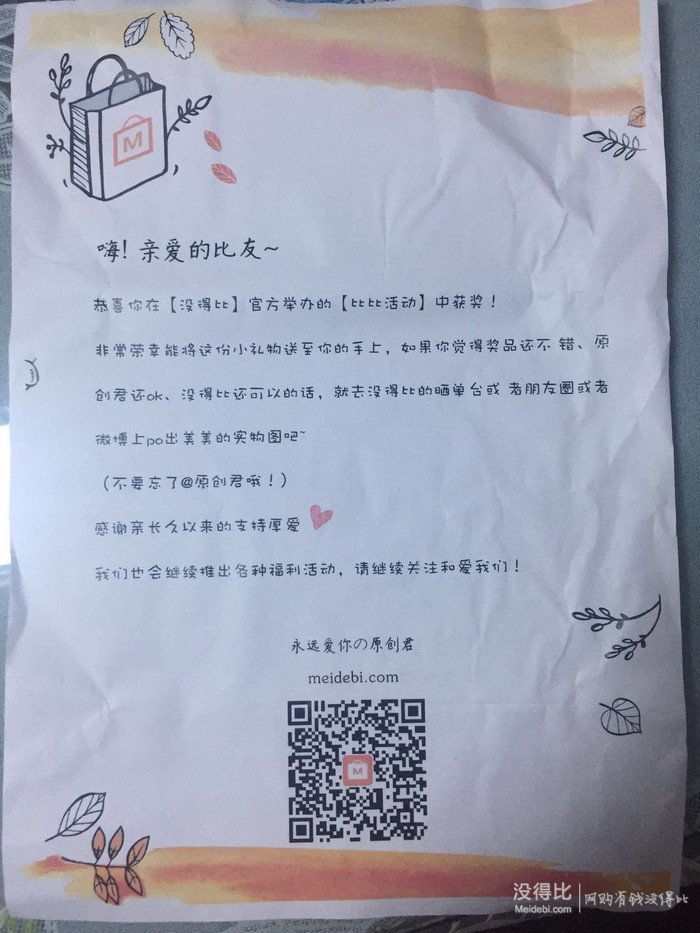 M
嗨! 亲爱的比友~
恭喜你在【没得比】官方举办的【比比活动】中获奖！
非常荣幸能将这份小礼物送至你的手上，如果你觉得奖品还不 错、原
创君还ok、没得比还可以的话，就去没得比的晒单台或 者朋友圈或者
微博上po出美美的实物图吧~
（不要忘了@原创君哦！）
感谢亲长久以来的支持厚爱
我们也会继续推出各种福利活动，请继续关注和爱我们！
永远爱你の原创君
meidebi.com
M
没得比 | 网购有钱没得比
Meidebi.com